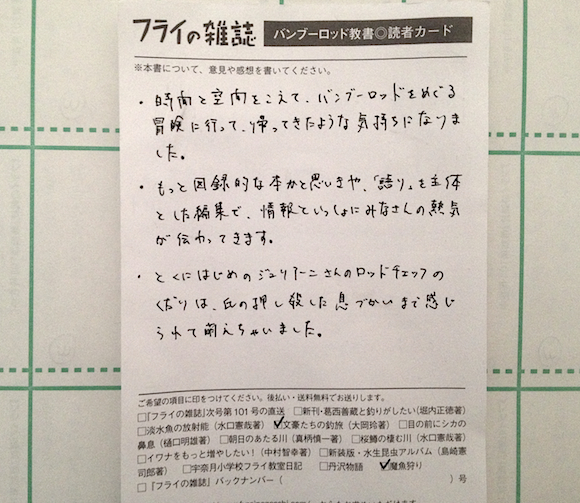 フライの雑誌 バンブーロッド教書◎読者カード
※本書について、意見や感想を書いてください。
・時間と空間をこえて、バンブーロッドをめぐる
冒険に行って、帰ってきたような気持ちになりま
した。
・もっと図録的な本かと思いきや、「語り」を主体
とした編集で、情報といっしょにみなさんの熱気
が伝わってきます。
・とくにはじめのジュリアーニさんのロッドチェックの
くだりは、氏の押し殺した息づかいまで感じ
られて萌えちゃいました。
ご希望の項目に印をつけてください。後払い・送料無料でお送りします。
□『フライの雑誌』次号第101号の直送 □新刊・葛西善蔵と釣りがしたい(堀内正徳著)
□淡水魚の放射能(水口憲哉著) ☑文豪たちの釣旅(大岡玲著) □目の前にシカの
鼻息(樋口明雄著) □朝日のあたる川(真柄慎一著) □桜鱒の棲む川(水口憲哉著)
□イワナをもっと増やしたい!(中村智幸著) □新装版・水生昆虫アルバム(島崎憲
司郎著) □宇奈月小学校フライ教室日記 □丹沢物語 ☑魔魚狩り
□『フライの雑誌』バックナンバー( )号